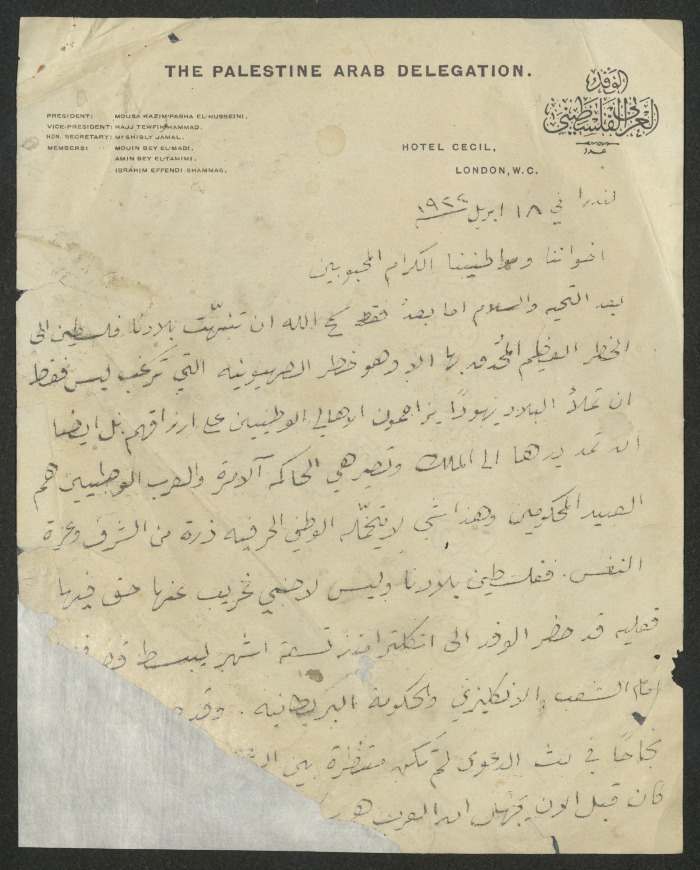 THE PALESTINE ARAB DELEGATION.
الوفد العربي الفلسطيني
عدد
PRESIDENT: MOUSA KAZIM PASHA EL-HUSSEINI.
VICE-PRESIDENT: HAJJ TEWFIK HAMMAD.
HON. SECRETARY: MR SHIBLY JAMAL.
MEMBERS: MOUIN BEY EL-MADI.
AMIN BEY EL-TAMIMI.
IBRAHIM EFFENDI SHAMMAS.
HOTEL CECIL,
LONDON, W.C.
لندرا في ١٨ ابريل ١٩٢٢
اخواننا ومواطنيننا الكرام المحبوبين
بعد التحيه والسلام اما بعد فقد الله ان تنبهّت بلادنا فلسطين الى
الخطر العظيم المُحدق بها الا وهو خطر الصهيونيه التي ترغب ليس فقط
ان تملأ البلاد يهودًا يزاحمون الاهالي الوطنيين على ارزاقهم بل ايضا
ان تمد يدها الى الملك وتصير هي الحاكمه الآمرة والعرب الوطنيين هم
العبيد المحكومين وهذا شي لا يتحمّله الوطني الحر فيه ذرة من الشرف وعزة
النفس. ففلسطين بلادنا وليس لاجنبي غريب عنها حق فيها
فعليه قد حضر الوفد الى انكلترا منذ تسعة اشهر ليبسط
امام الشعب الانكليزي والحكومة البريطانيه. وقد
نجاحًا في بث الدعوى لم تكن منتظرة بين
كان قبل الان يجهل ان العرب